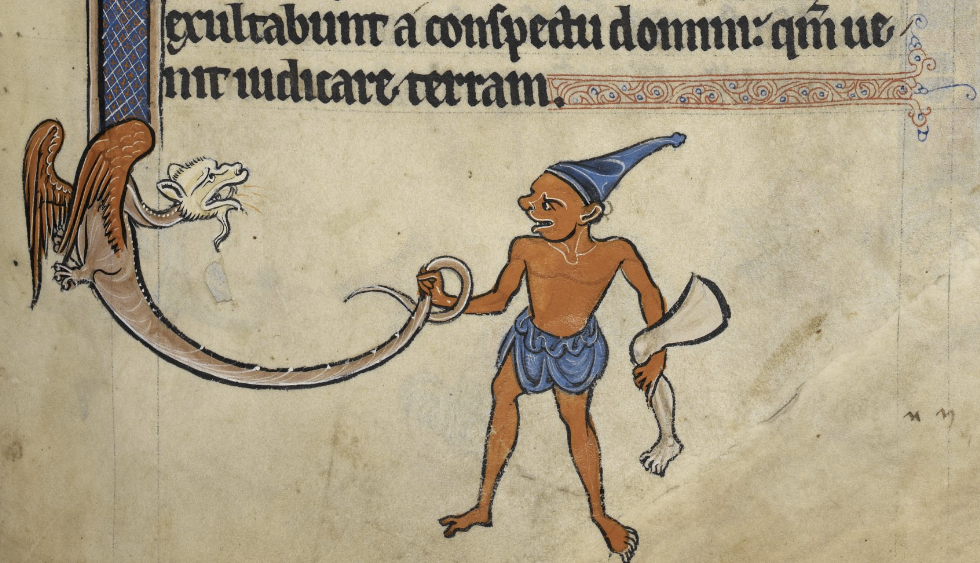 exultabunt a conspectu domini: qm̄ ue
nit iudicare terram.